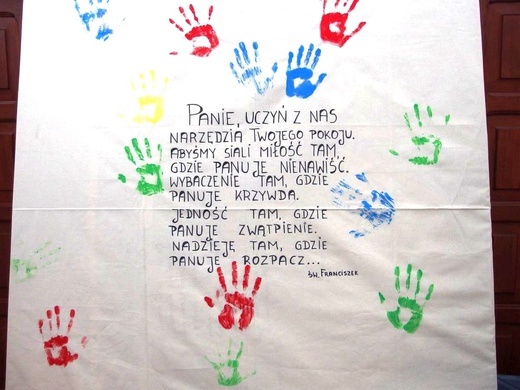 PANIE, UCZYŃ Z NAS
NARZĘDZIA TWOJEGO POKOJU.
ABYŚMY SIALI MIŁOŚĆ TAM,
GDZIE PANUJE NIENAWIŚĆ.
WYBACZENIE TAM, GDZIE
PANUJE KRZYWDA.
JEDNOŚĆ TAM, GDZIE
PANUJE ZWĄTPIENIE.
NADZIEJĘ TAM, GDZIE
PANUJE ROZPACZ...
ŚW. FRANCISZEK